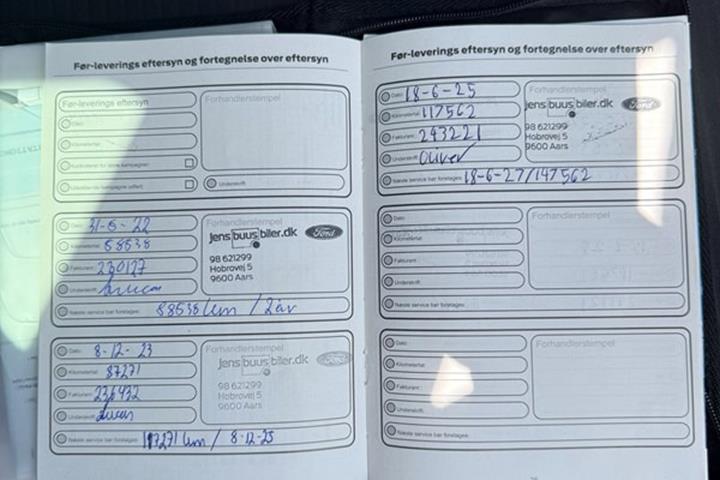 Før-leverings eftersyn og fortegnelse over eftersyn
Før-leverings eftersyn
Forhandlerstempel
Dato:
Kilometertal:
Kontrolleret for åbne kampagner:
Underskrift:
Dato: 31-5-22
Kilometertal: 58538
Fakturanr.: 230127
Underskrift:
jens buus biler.dk
Ford
98 621299
Hobrovej 5
9600 Aars
Næste service bør foretages: 88538 km / 2 år
Dato: 8-12-23
Kilometertal: 87271
Fakturanr.:
Underskrift:
Forhandlerstempel
jens buus biler.dk
Ford
98 621299
Hobrovej 5
9600 Aars
Næste service bør foretages: 117271 km / 8-12-25
Før-leverings eftersyn og fortegnelse over eftersyn
Dato: 18-6-25
Kilometertal: 117562
Fakturanr.: 243221
Underskrift: Oliver
Forhandlerstempel
jens buus biler.dk
Ford
98 621299
Hobrovej 5
9600 Aars
Næste service bør foretages: 18-6-27/147562
Dato:
Kilometertal:
Fakturanr.:
Underskrift:
Forhandlerstempel
Næste service bør foretages:
Dato:
Kilometertal:
Fakturanr.:
Underskrift:
Forhandlerstempel
Næste service bør foretages: